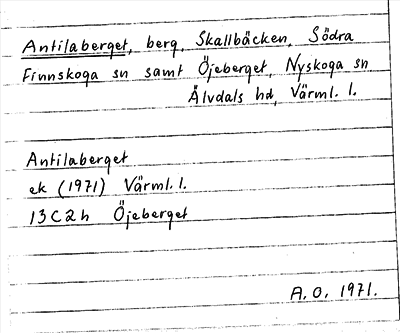 Antilaberget, berg, Skallbäcken, Södra
Finnskoga sn samt Öjeberget, Nyskoga sn
Älvdals hd, Värml. l.
Antilaberget
ek (1971) Värml. l.
13C2h Öjeberget
A. O, 1971.